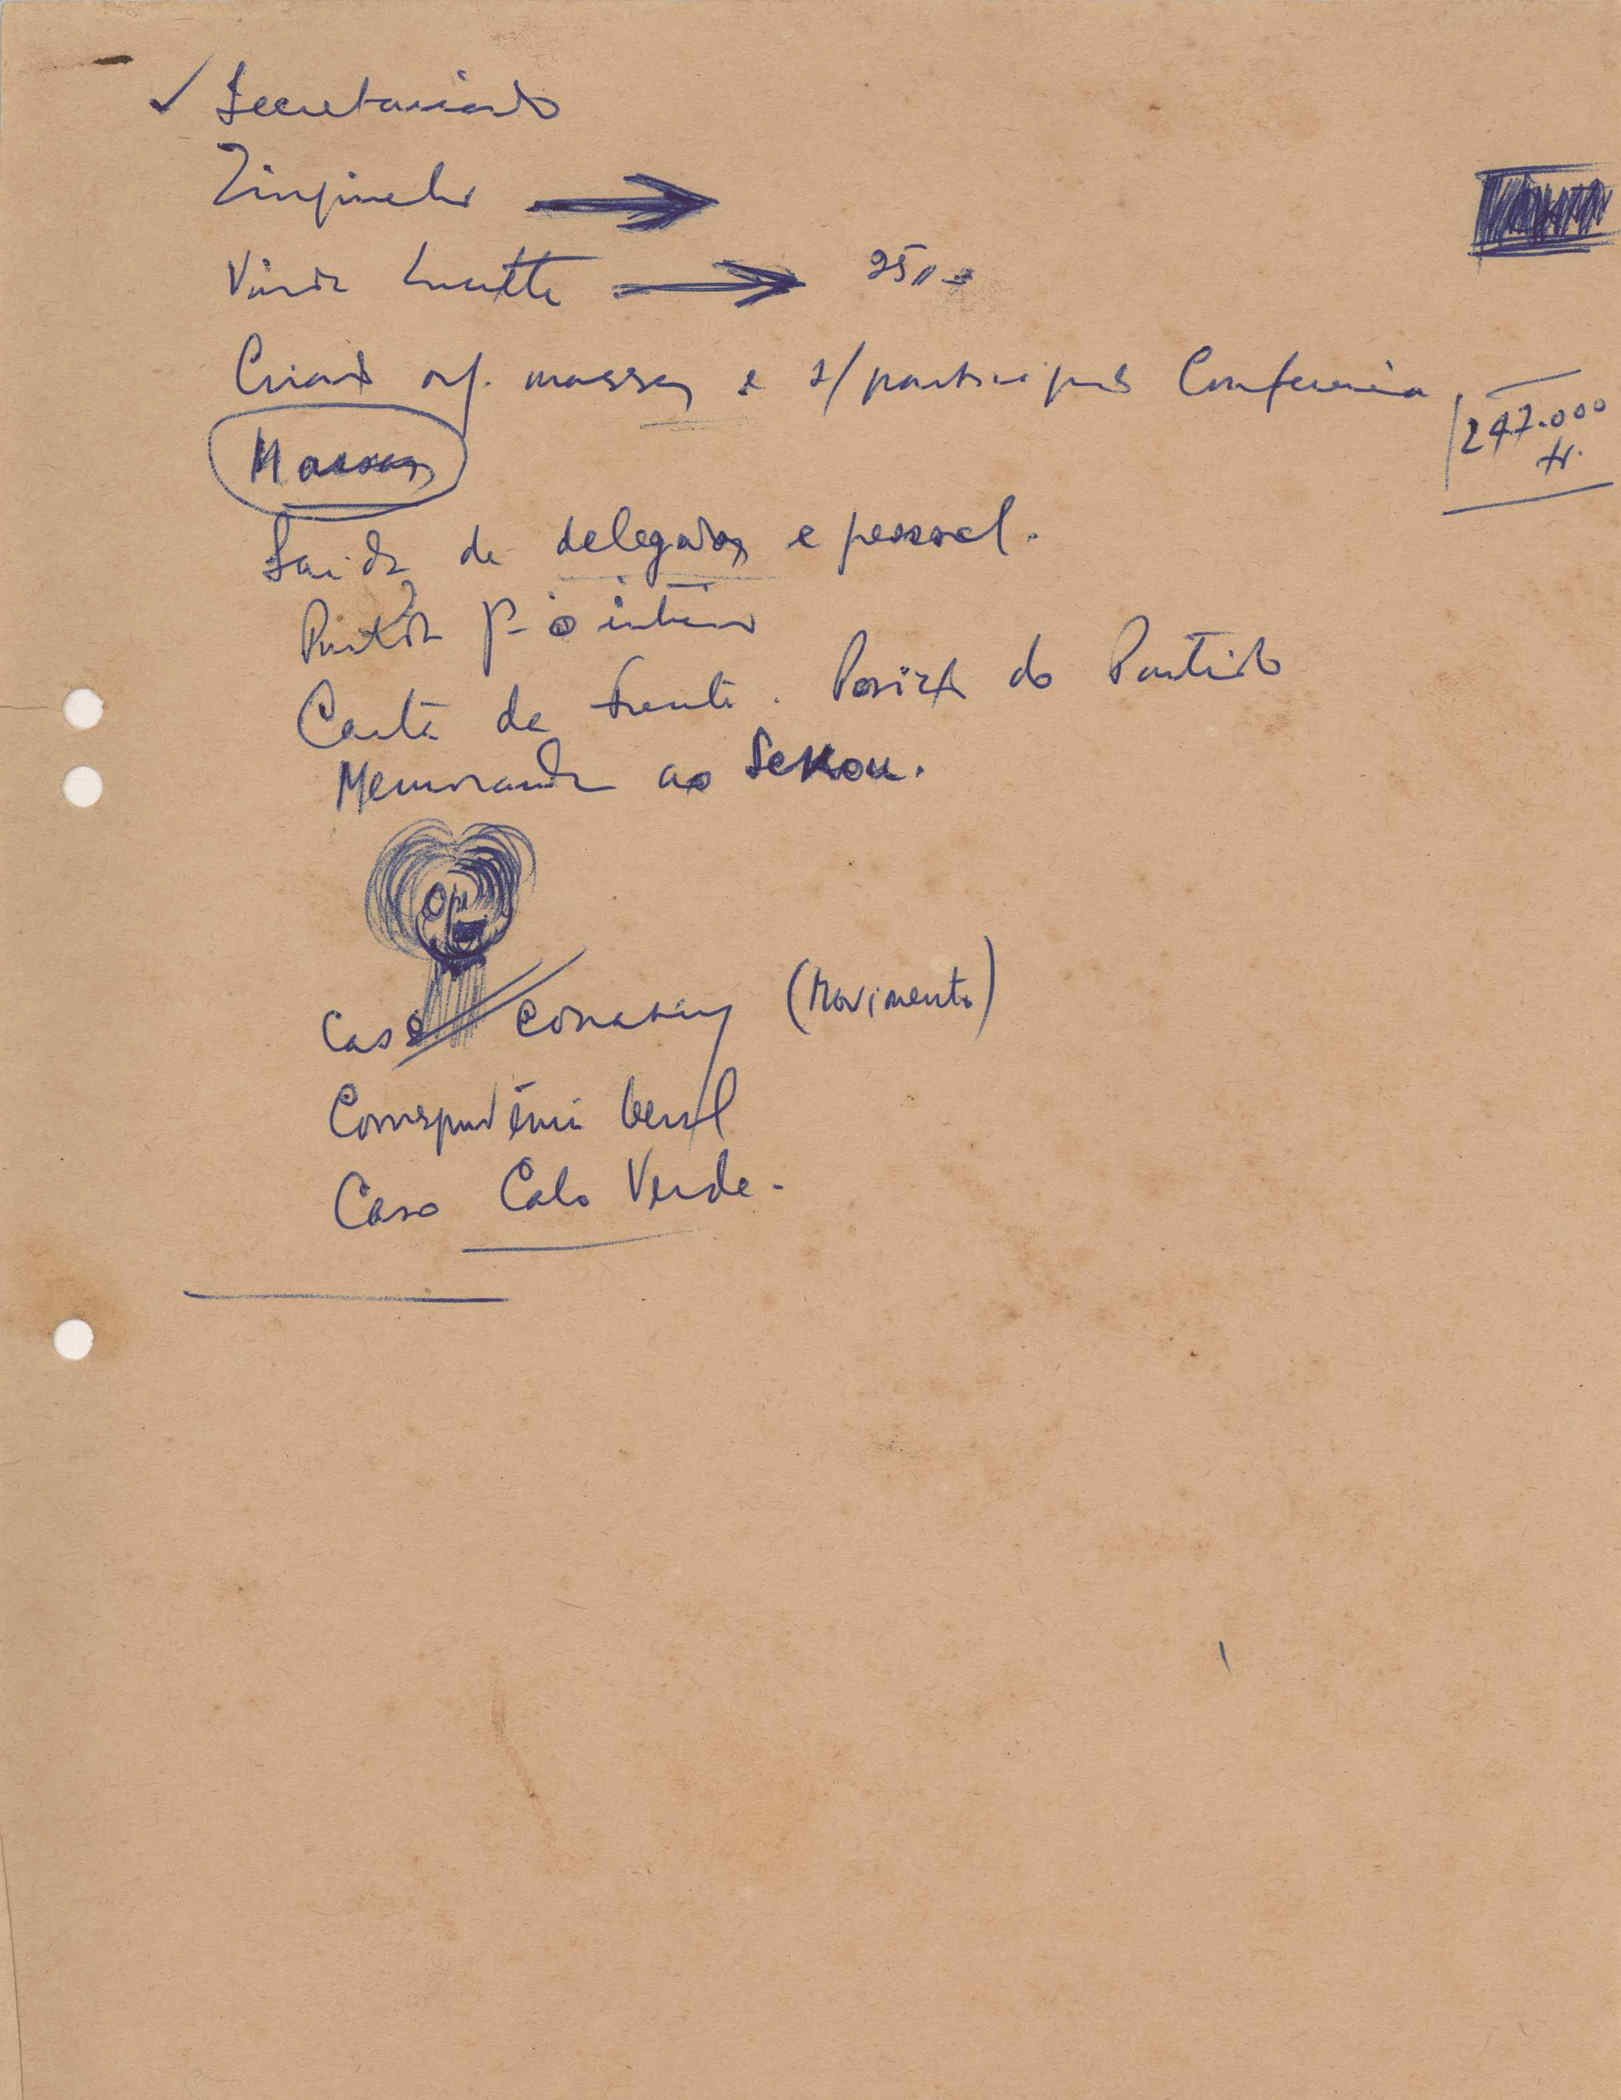 Secretariado
Vinda Lucette
Criação org. massas e s/ participação Conferência
247.000
fr.
Massas
Saída de delegados e pessoal.
Partida p. o interior
Carta da Frente. Posição do Partido
Memoranda ao Sekou.
Caso Conakry (Movimento)
Correspondência Geral
Caso Cabo Verde.